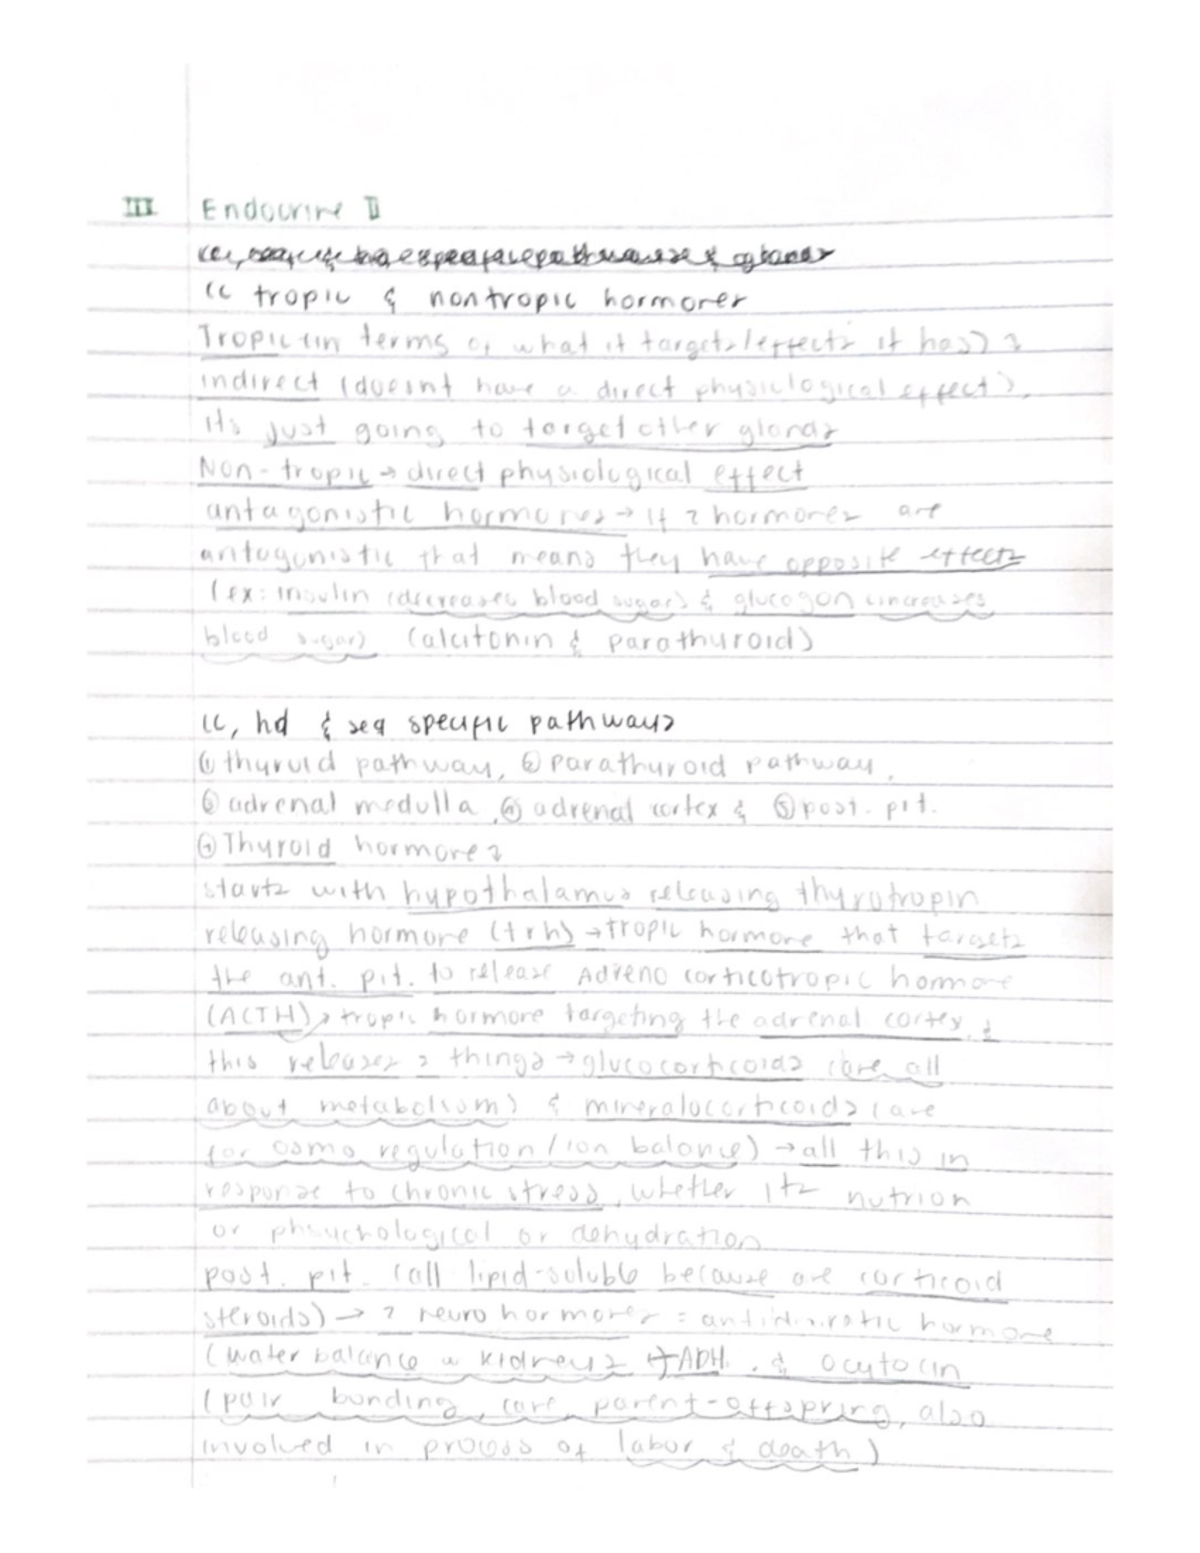 III Endocrine II
cc tropic & nontropic hormones
Tropic (in terms of what it targets/effects it has) →
indirect (doesnt have a direct physiological effect),
its just going to target other glands
Non-tropic → direct physiological effect
antagonistic hormones → if 2 hormones are
antagonistic that means they have opposite effects
(ex: insulin (decreases blood sugar) & glucogon (increases
blood sugar) (alcitonin & parathyroid)
cc, hd & seq specific pathways
① thyroid pathway, ② parathyroid pathway,
③ adrenal medulla, ④ adrenal cortex & ⑤ post. pit.
Thyroid hormones
starts with hypothalamus releasing thyrotropin
releasing hormone (trh) → tropic hormone that targets
the ant. pit. to release Adreno corticotropic hormone
(ACTH) → tropic hormone targeting the adrenal cortex, &
this releases 2 things → glucocorticoids (are all
about metabolism) & mineralocorticoids (are
for osmo regulation/ion balance) → all this in
response to chronic stress, whether its nutrion
or phsychological or dehydration
post. pit. (all lipid-soluble because are corticoid
steroids) → 2 neuro hormones = antidiuretic hormone
(water balance w kidneys → ADH. & ocytocin
(pair bonding, care parent-offspring, also
involved in process of labor & death)